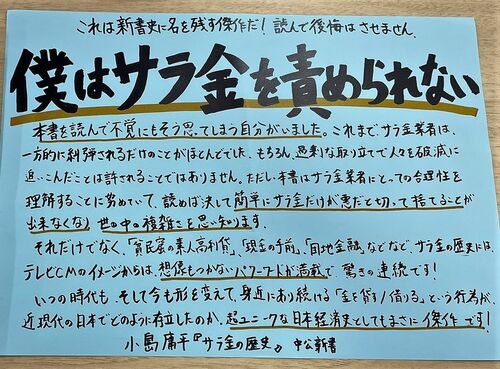 これは新書史に名を残す傑作だ！読んで後悔はさせません。
僕はサラ金を責められない
本書を読んで不覚にもそう思ってしまう自分がいました。これまでサラ金業者は、
一方的に糾弾されるだけのことがほとんどでした。もちろん、過剰な取り立てで人々を破滅に
追いこんだことは許されることではありません。ただし本書はサラ金業者にとっての合理性を
理解することに努めていて、読めば決して簡単にサラ金だけが悪だと切って捨てることが
出来なくなり世の中の複雑さを思い知ります。
それだけでなく、「貧民窟の素人高利貸」、「現金の手前」、「団地金融」などなど、サラ金の歴史には、
テレビCMのイメージからは、想像もつかないパワーワードが満載で驚きの連続です！
いつの時代も、そして今も形を変えて、身近にあり続ける「金を貸す/借りる」という行為が、
近現代の日本でどのように存立したのか、超ユニークな日本経済史としてもまさに傑作です！
小島庸平『サラ金の歴史』中公新書